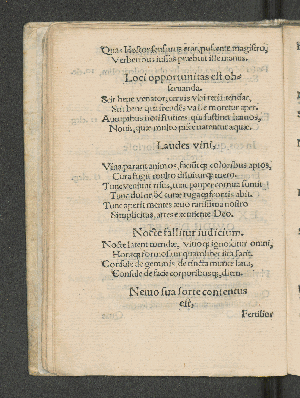 Quas Hector sensurus erat, poscente magistro,
Verberibus iussas præbuit ille manus.
Loci opportunitas est obseruanda.
Scit bene venator, ceruis vbi retia tendat,
Scit bene qua frendēs valle moretur aper.
Aucupibus noti frutices, qui sustinet hamos,
Nouit, quæ multo pisce natentur aquæ.
Laudes vini,
Vina parant animos, faciūtq; caloribus aptos,
Cura fugit multo diluiturq; mero.
Tunc veniunt risus, tunc pauper cornua sumit
Tunc dolor & curæ rugaq; frontis abit.
Tunc aperit mentes æuo rarissima nostro
Simplicitas, artes excutiente Deo.
Nocte fallitur iudicium.
Nocte latent mendæ, vitioq; ignoscitur omni,
Horaq; formosam quamlibet illa facit.
Consule de gemmis, de tincta murice lana,
Consule de facie corporibusq; diem.
Nemo sua sorte contentus
est,
Fertilior